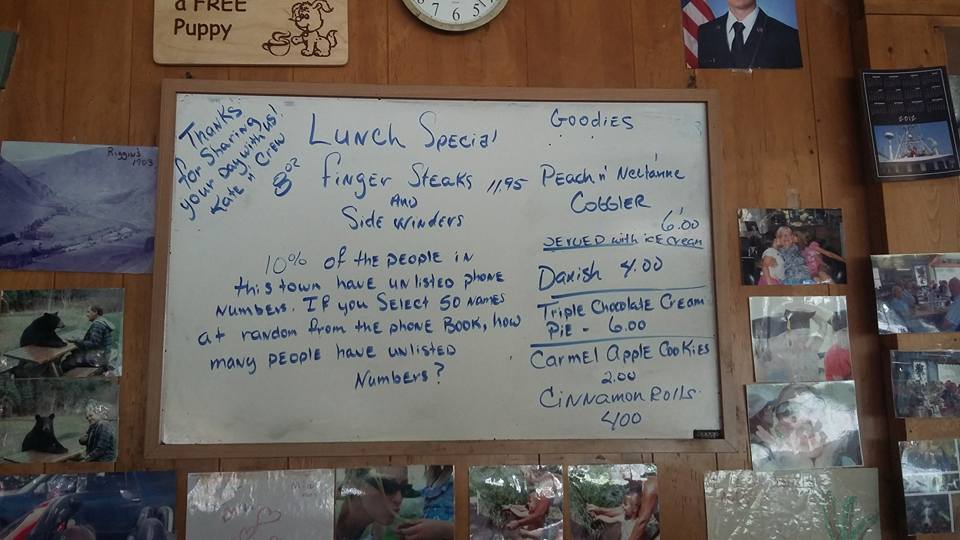 a FREE
Puppy
7 6 5
Thanks
for Sharing
your Day with us!
Kate "n" Crew
Lunch Special
8oz Finger Steaks 11.95
AND
Side Winders
10% of the people in
this town have unlisted phone
Numbers. If you Select 50 names
at random from the phone Book, how
many people have unlisted
Numbers?
Goodies
Peach n' Nectarine
Cobbler
6.00
Served with ice cream
Danish 4.00
Triple Chocolate Cream
Pie - 6.00
Carmel Apple Cookies
2.00
Cinnamon Rolls
4.00
Riggins
1903
2012